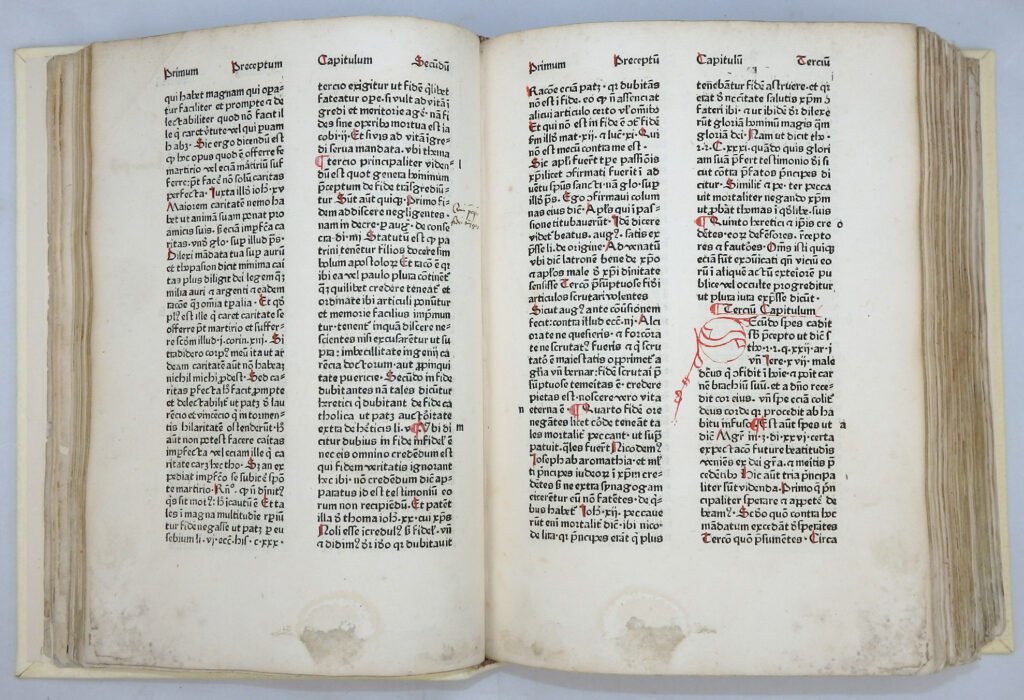 Primum Preceptum
Capitulum Secūdū
qui habet magnam qui opa⸗
tur faciliter et prompte ⁊ de
lectabiliter quod nō facit il
le q̄ caret v̓tute vel qui puam
habꝫ. Sic ergo dicendū est
martirio vel eciam mātiriū suf
perfecta. Iuxta illō ioh̓. xv
Maiorem caritatē nemo ha
bet ut animā suam ponat pro
amicis suis. si eciā impfca ca
ritas. vn̄ glo. sup illud ps.
Dilexi mādata tua sup aurū
et thopasion dicit minima cai
tas plus diligit dei legem qꝫ
milia auri ⁊ argenti ⁊ eadem
racōe qꝫ om̄ia tp̄alia. Et q̄ō
pl̓ est ille q̄ caret caritate se
offerre p̄t martirio et suffer⸗
re scōm illud .j. corin. xiij. Si
tradidero corpꝰ meū ita ut ar
deam caritatē aūt nō habeā
nichil michi ꝓdest. Sed ca⸗
ritas pfecta h̓ facit prompte
et delectabiliter ut pꝫ ō lau
rēcio et vincēcio q̄ in tormen⸗
tis hilaritatē ostenderūt. h̓
aūt non potest facere caitas
impfecta vel eciam ille q̄ ca
ritate carꝫ hec tho. Sꝫ an ex
te martirio. Rn̄°. ꝙ
les ī magna multitudīe
tur fidē negasse ut patꝫ p eu
sebium li. vj. ecc̄. his. c. xxx.
tercio exigitur ut fidē q̄libet
fateatur ope. si vult ad vitā ī
gredi et meritorie agē. nā fi
des sine opibꝰ mortua est ia
cobi. ij. Et si vis ad vitā igre⸗
di serua mandata. vbi thoma
Tercio principaliter viden⸗ l
dū est quot genera hominum
p̄ceptum de fide trāsgrediū⸗
tur Sūt aūt quīqꝫ. Primo fi⸗
dem addiscere negligentes.
nam in decre. p aug. de conse
cra. di. iiij. Statutū est ꝙ pa
trini tenētur filios docere sim
bolum apostoloꝝ. Et racō ē qꝫ
ibi ea vel paulo plura cōtinēt̉
qꝫ quilibet credere teneat̉ et
ordinate ibi articuli ponūtur
et memorie facilius imprimun
tur. tenent̉ inquā discere ne⸗
scientes nisi excusarētur ut su
pra: imbecillitate ingenij ca
rēcia doctorum. aut ꝓpinqui
tate puericie. Secūdo in fide
dubitantes nā tales dicūtur
heretici q̄ dubitant de fide ca
tholica ut patꝫ auctōitate
extra de heticis li. v. Ubi di m
citur dubius in fide infidel̓ ē
nec eis omnino credendum est
qui fidem veritatis ignorant
hec ibi. nō credendum dic̄ ap⸗
paratus id est testimoniū eo
rum non recipiēdū. Et patēt
illa ō thoma ioh̓. xx. cui xp̄s
Noli esse īcredulꝰ ß fidel̓. vn̄
⁊ didimꝰ. ō͂r id̓o qꝛ dubitauit
Primum Preceptū
Capitulū Terciū
Racōe eciā patꝫ. qꝛ dubitās
nō est ī fide. eo ꝙ nō assenciat
alicui articulo certo vl̓ omībꝰ
Et qui nō est in fide ē ō̄ fidē
fm illō mat. xij. ⁊ luc̄. xi. Qui
nōn est mecū contra me est.
Sic apl̓i fuerēt tꝑe passiōis
xp̄i scilicet ōfirmati fuerīt ī ad
uētu spūs sancti. nā glo. sup
illō ps. Ego ōfirmaui colum
nas eius dic̄. Apl̓os qui ī pas⸗
sione titubauerūt. Idē dicere
videt̉ beatus. aug. satis ex
p̄sse li. de origīe. Ad renatū
vbi dic̄ latronē bene de xp̄o
⁊ apl̓os male ō xp̄i dīnitate
sensisse Tercō p̄suptuose fidi
articulos scrutari volentes
Sicut aug. ante cōuersionem
fecit: contra illud ecc̄. iij. Alci
ora te ne quesieris. ⁊ forciōra
te ne scrutatꝰ fueris ⁊ q̄ scru
tatō ē maiestatis opprimet̉ a
gl̓ia vn̄ bernar: fidē scrutai p̄
suptuose temeitas ē. credere
pietas est. noscere vero vita
n eterna ē. Quarto fidē ore
negātes licet cōde teneāt ta
les mortalit̉ peccant. ut sup̄
patuit. q̄les fuerēt Nicodemꝰ
Ioseph ab aromathia. et mlt̓
ti p̄ncipes iudeoꝝ ī xp̄m cre⸗
dētes ß ne extra synagogam
eicerētur eū nō fatētes. de q̄⸗
bus habet̉. Ioh̓. xij. peccaue
rūt em̄ mortalit̉ dic̄ ibi nico
de lira. qꝛ p̄ncipes erāt q̄ plus
tenebātur fidē astruere. et qꝛ
etat ō necc̄itate salutis xp̄m ō
fateri ibi. ⁊ ut ibidē ō̄r dilexe
rūt gloriā hominū magis qꝫ
gloriā dei. Nam ut dicit tho.
. C. xxxi. quādo quis glori
am suā p̄fert testimonio ō̄i si
cut contra p̄fatos p̄ncipes di
citur. Similit̉ ⁊ pe. ter pecca
uit mortaliter negando xp̄m
ut ꝓbāt thomas ī q̄libꝫ. suis
Quinto heretici ⁊ ip̄is cre o
dētes. eoꝝ defēsores. receptō
res ⁊ fautōes. Om̄s isti quiqꝫ
eciā sūt excōicati qn̄ viciū eo
rū ī aliquē actū exteriorē pu
blice vel occulte progreditur
ut plura iura exp̄sse dicūt.
Terciū Capitulum
Secūdo spes cadit
sb̓ p̄cepto ut dic̄ s
tho. . q. xxij. ar. i
vn̄ Iere. xvij. male
dctus q̄ ōfidit ī hoīe. ⁊ poīt car
nē brachiū suū. et a dn̄o rece⸗
dit cor eius. vn̄ spe eciā colit̉
deus corde qꝛ procedit ab ha
bitu infuso Est aūt spes ut a
dic̄ Mgr̄ iij. di. xxvi. certa
expectacō future beatitudis
veniēs ex dei gr̄a. ⁊ meitis p̄
cedētibꝰ Hic aūt tria p̄ncipa
liter sūt videnda. Primo q̄ p̄n
cipaliter sperare ⁊ appetē de
beamꝰ. Scōo quō contra hoc
mādatum excedāt ō̄sperātes
Tercō quō p̄sumētes. Circa